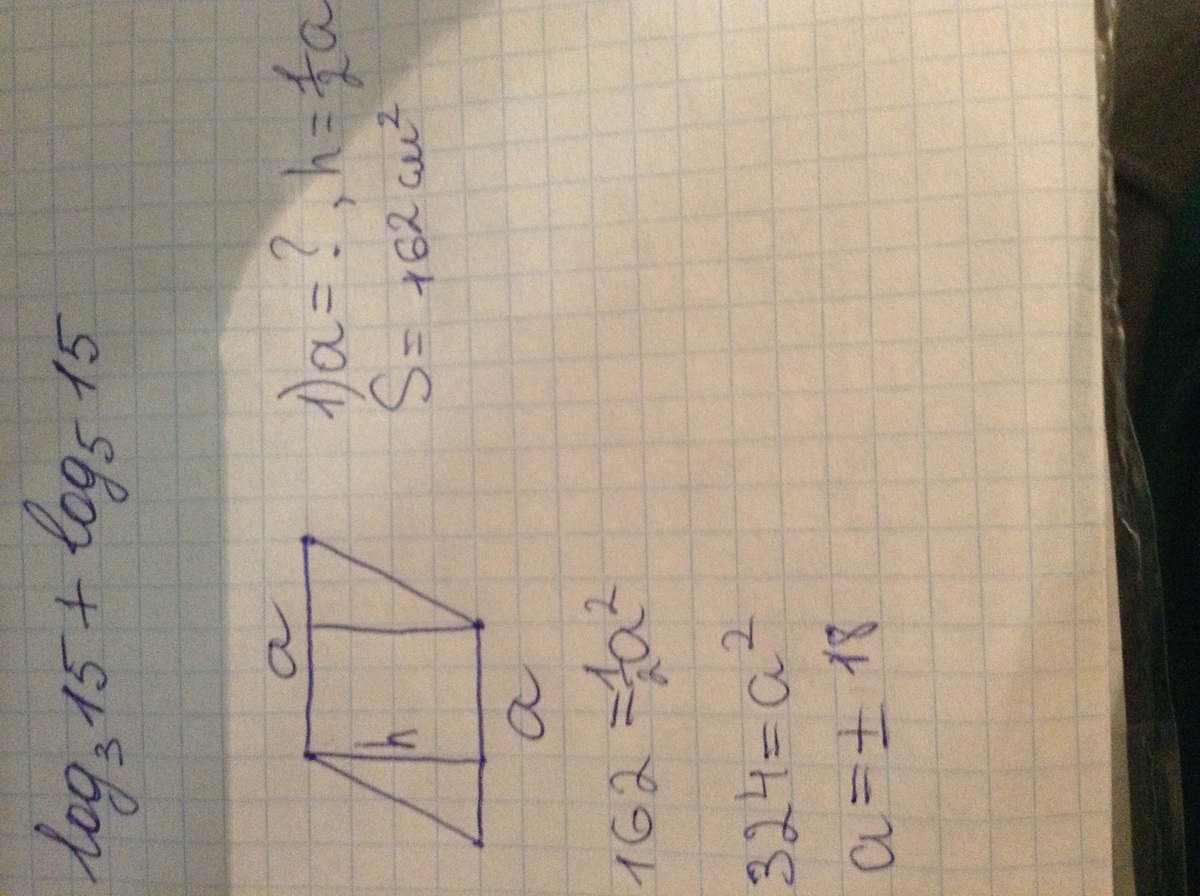 log₃15 + log₅15
a
h
a
1) a = ? , h = ½a
S = 162 см²
162 = ½a²
324 = a²
a = ± 18